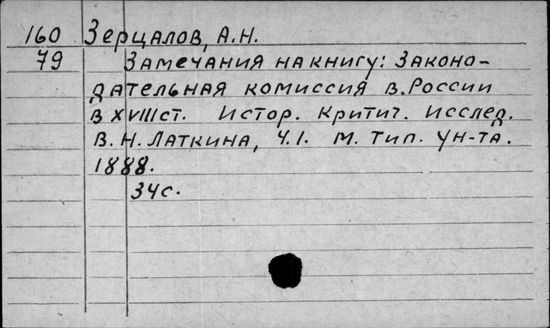 160 Зерцалов, А.Н.
79 Замечания на книгу: Законо-
дательная комиссия в.России
в XVIIIст. Истор. Критич. Исслед.
В.Н. Латкина, Ч.1. М. Тип. Ун-та.
1888.
34с.